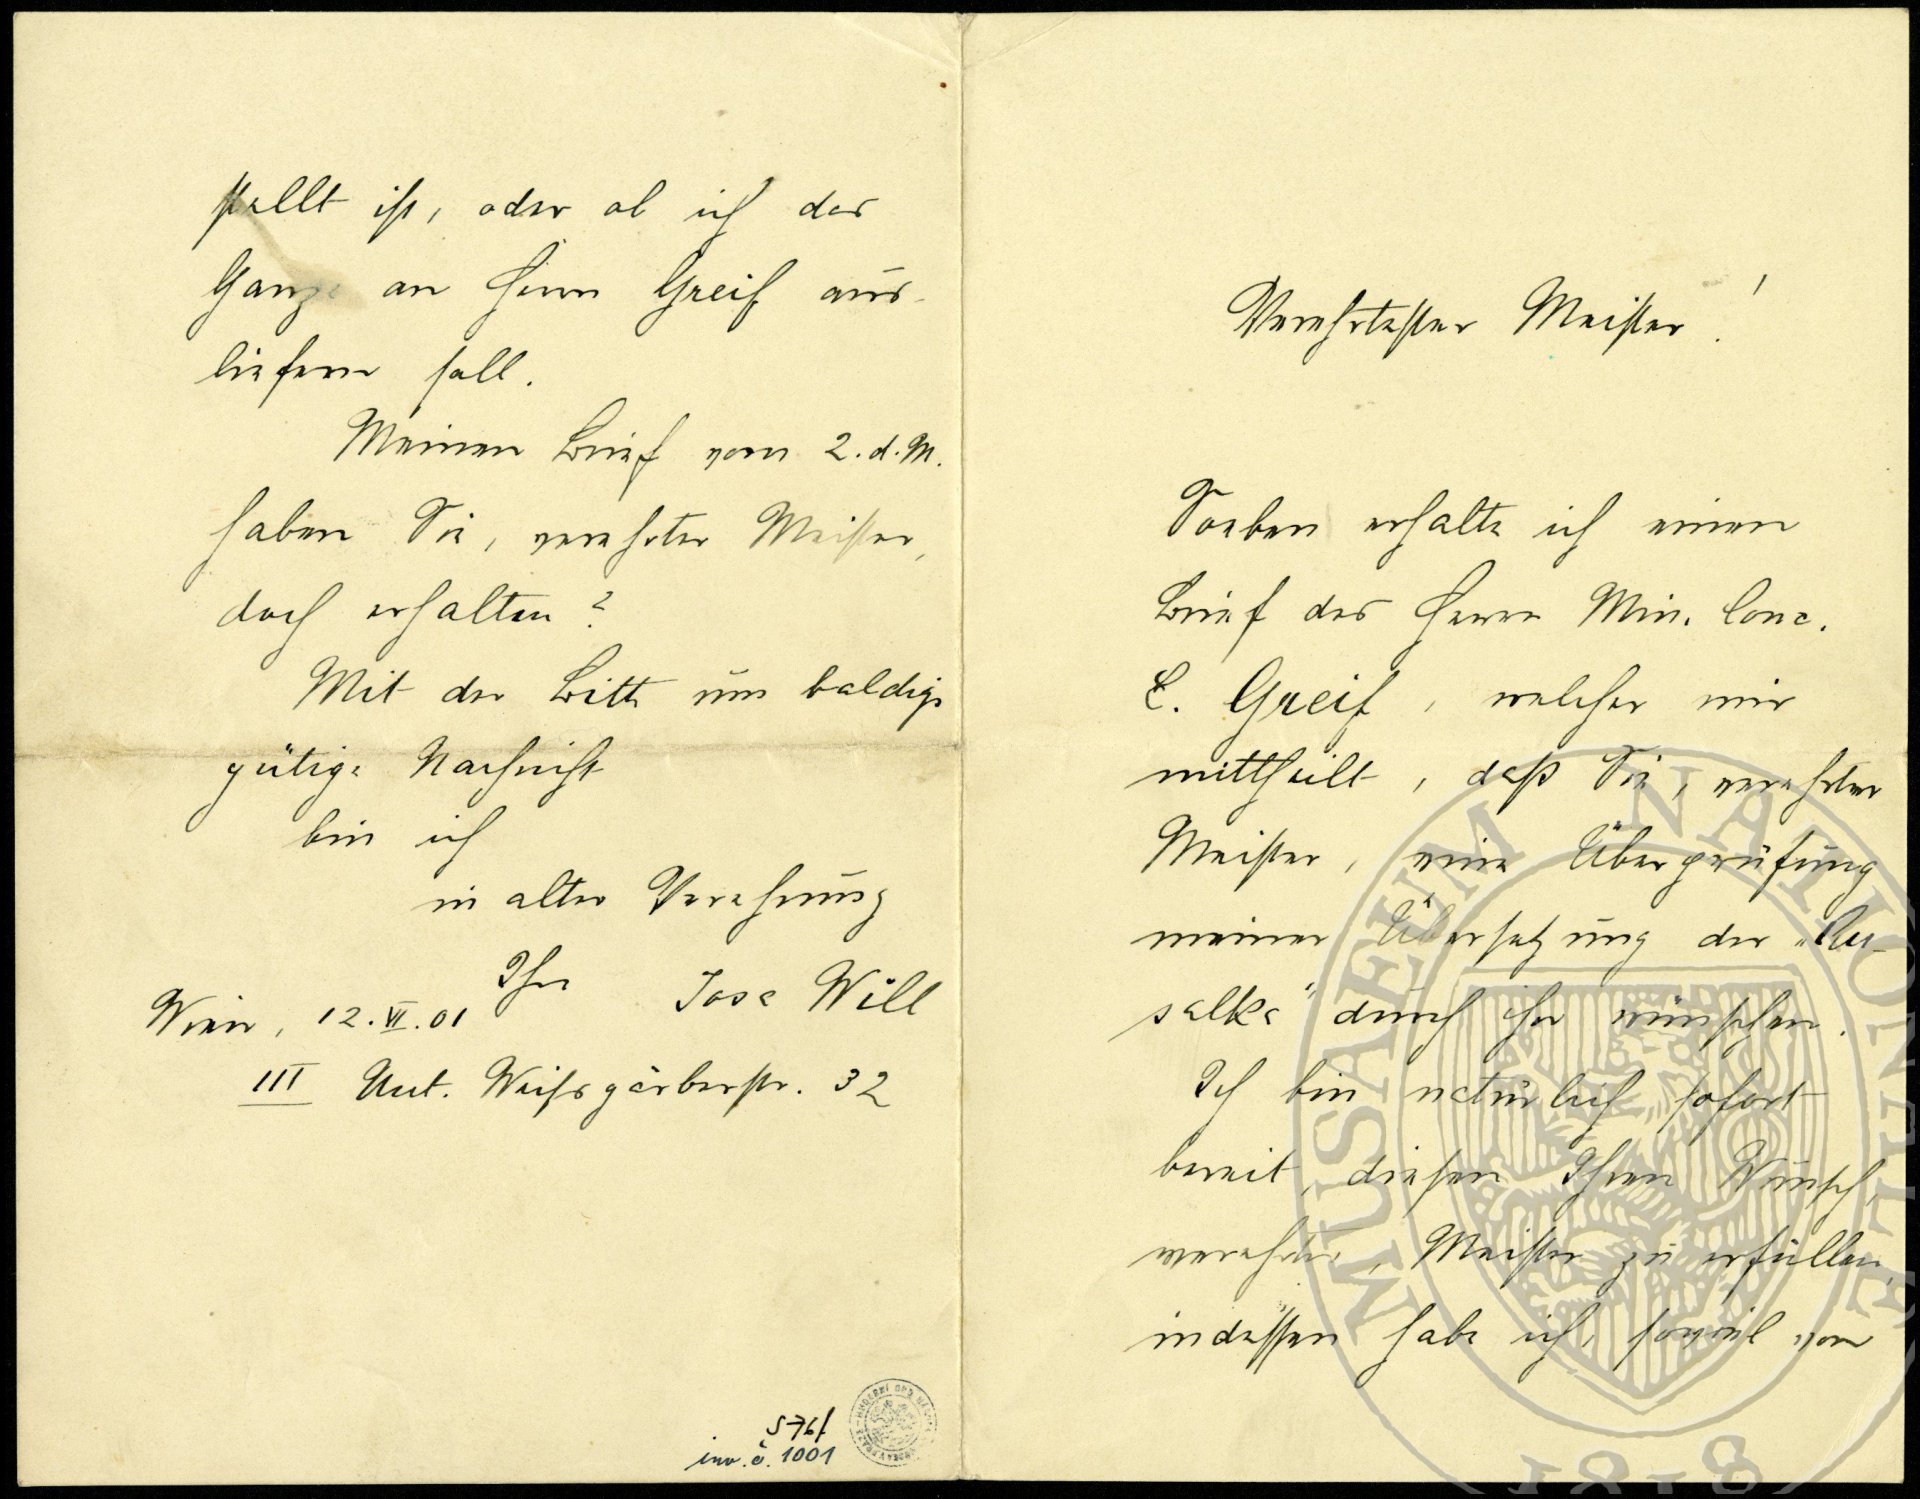 Verehrtester Meister!
Soeben erhalte ich einen
Brief des Herrn Min. Conc.
E. Greif, welcher mir
mittheilt, daß Sie, verehrter
Meister, eine Überprüfung
meiner Übersetzung der „Ru-
salka" durch ihn wünschen.
Ich bin natürlich sofort
bereit, diesen Ihren Wunsch,
verehrter Meister zu erfüllen,
indessen habe ich, soviel von
stellt ist, oder ob ich das
Ganze an Herrn Greif aus-
liefern soll.
Meinen Brief vom 2. d. M.
haben Sie, verehrter Meister,
doch erhalten?
Mit der Bitte um baldige
gütige Nachricht
bin ich
in alter Verehrung
Ihr Jose Will
Wien, 12. VI. 01
III Unt. Weissgärberstr. 32
S 76/
inv. č. 1001
MUSAEUM NATIONALE
1818